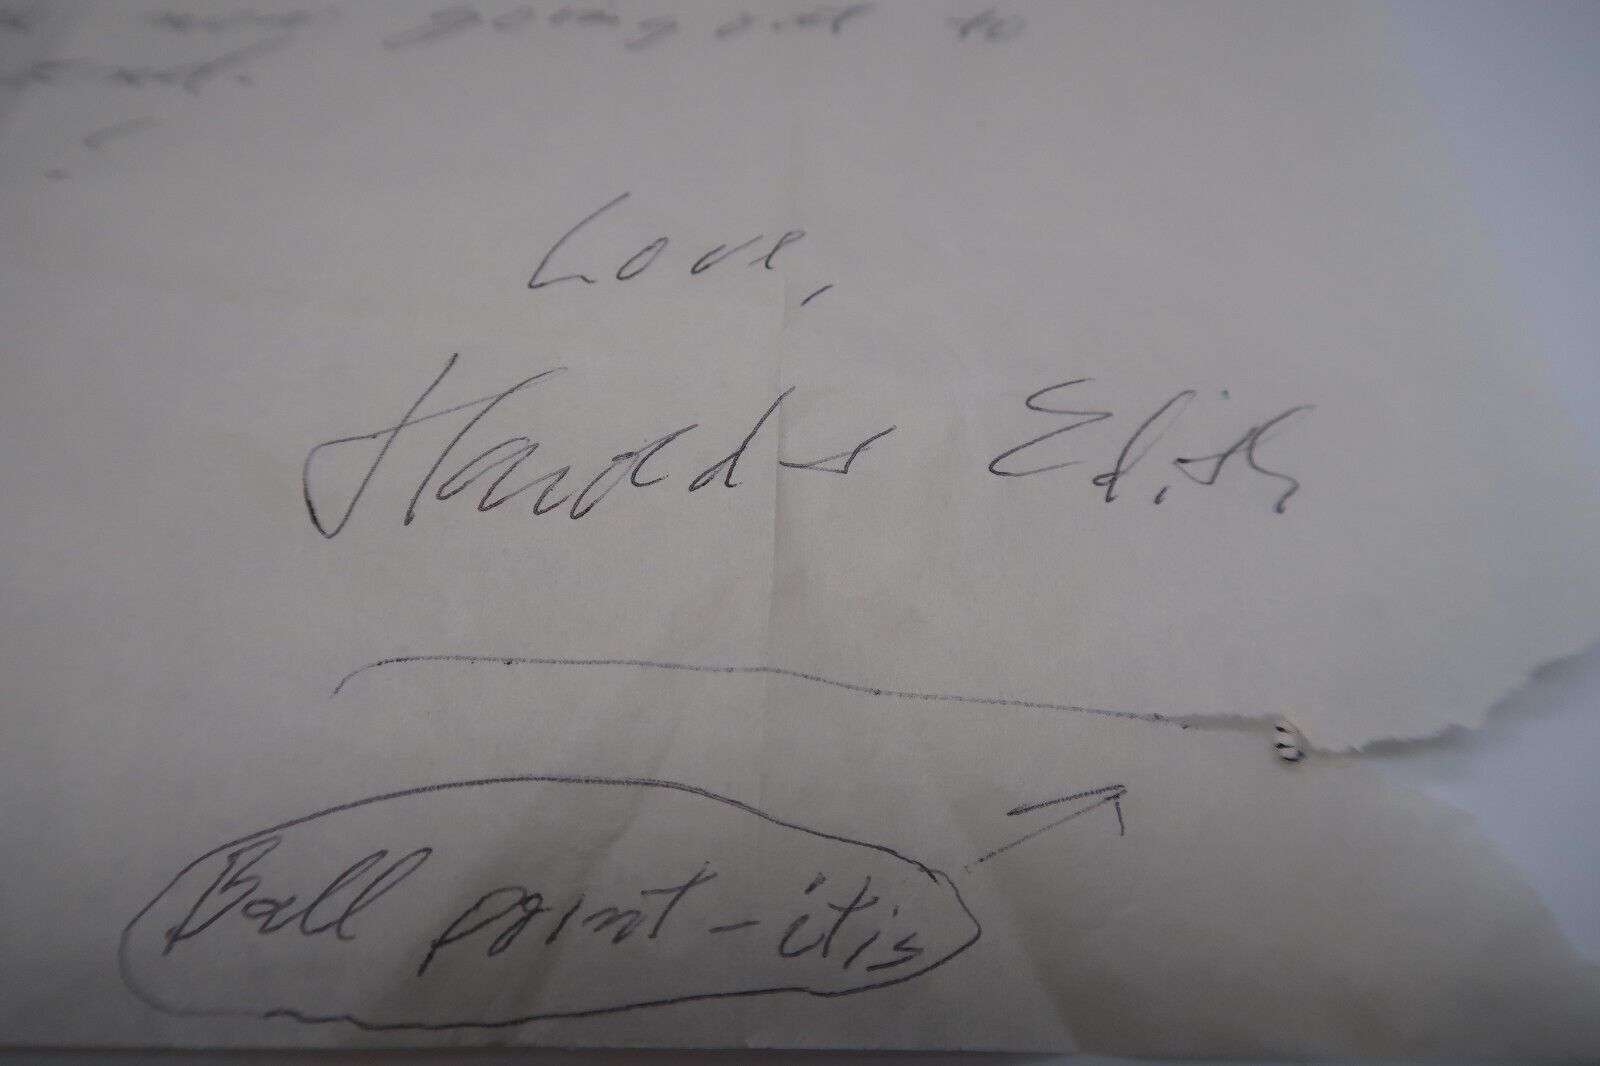 going out to
Love,
Harold + Edith
Ball point-itis